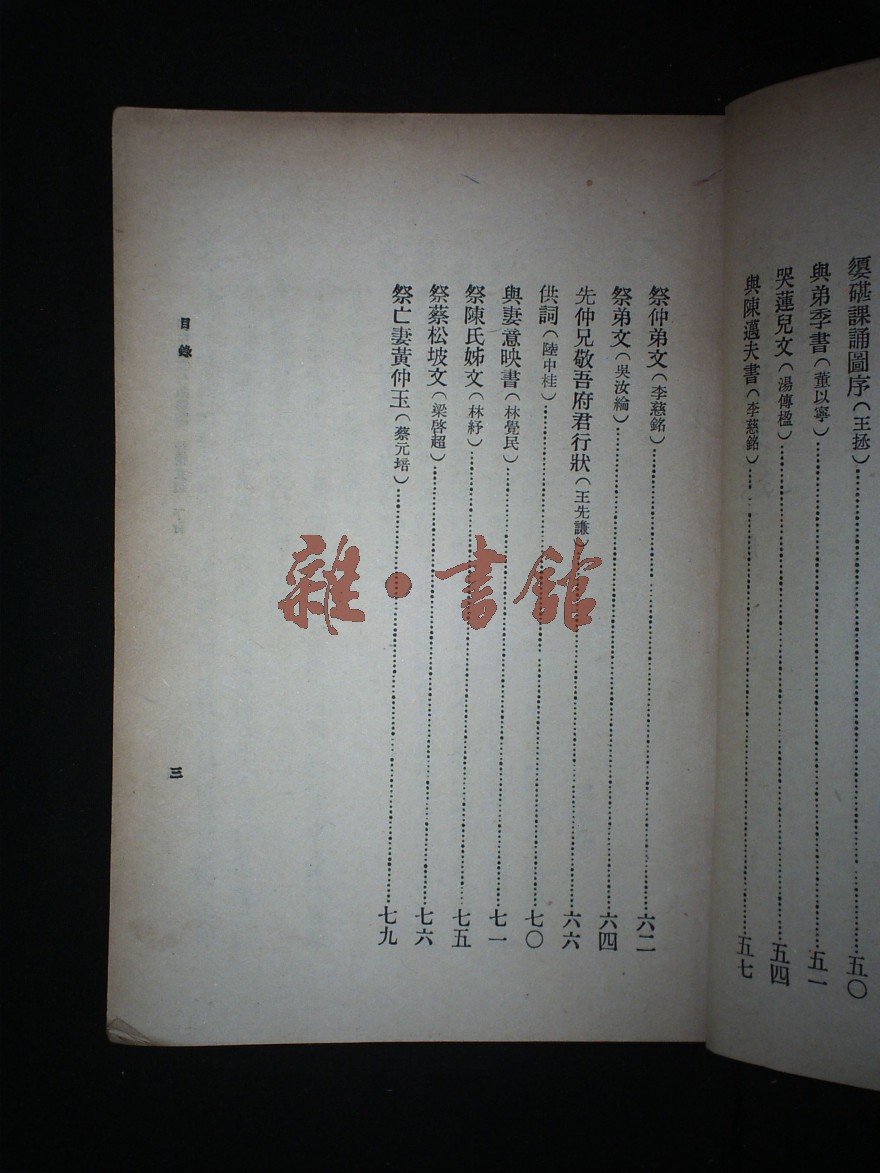 媭碪課誦圖序(王拯)……五〇
與弟季書(董以寧)……五一
哭蓮兒文(湯傳楹)……五四
與陳邁夫書(李慈銘)……五七
祭仲弟文(李慈銘)……六二
祭弟文(吳汝綸)……六四
先仲兄敬吾府君行狀(王先謙)……六六
供詞(陸中桂)……七〇
與妻意映書(林覺民)……七一
祭陳氏姊文(林紓)……七五
祭蔡松坡文(梁啓超)……七六
祭亡妻黃仲玉(蔡元培)……七九
目錄
三
雜·書館